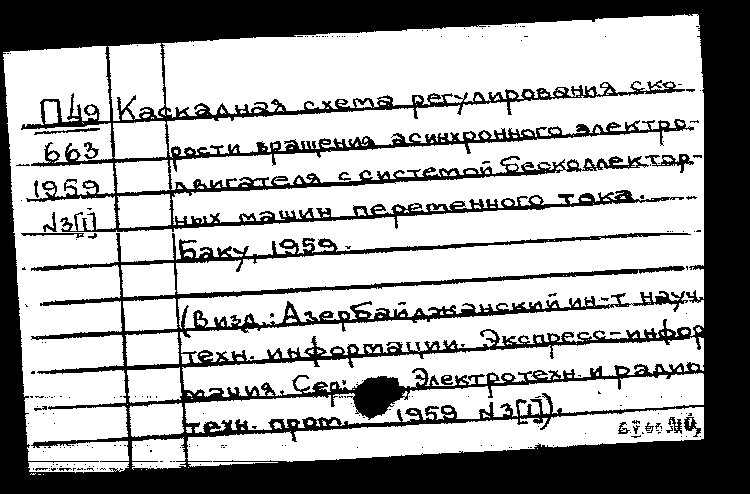 П49 Каскадная схема регулирования ско-
663 рости вращения асинхронного электро-
1959 двигателя с системой бесколлектор-
N3[I] ных машин переменного тока.
Баку, 1959.
(В изд.: Азербайджанский ин-т науч.
техн. информации. Экспресс-инфор
мация. Сер: Электротехн. и радио
техн. пром. 1959 N3[I]).